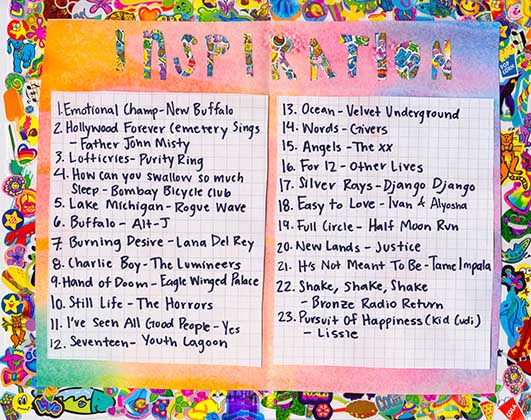 INSPIRATION
1. Emotional Champ - New Buffalo
2. Hollywood Forever Cemetery Sings
- Father John Misty
3. Lofticries - Purity Ring
4. How can you swallow so much
Sleep - Bombay Bicycle Club
5. Lake Michigan - Rogue Wave
6. Buffalo - Alt-J
7. Burning Desire - Lana Del Rey
8. Charlie Boy - The Lumineers
9. Hand of Doom - Eagle Winged Palace
10. Still Life - The Horrors
11. I've Seen All Good People - Yes
12. Seventeen - Youth Lagoon
13. Ocean - Velvet Underground
14. Words - Givers
15. Angels - The XX
16. For 12 - Other Lives
17. Silver Rays - Django Django
18. Easy to Love - Ivan & Alyosha
19. Full Circle - Half Moon Run
20. New Lands - Justice
21. It's Not Meant To Be - Tame Impala
22. Shake, Shake, Shake
- Bronze Radio Return
23. Pursuit Of Happiness (Kid Cudi)
- Lissie